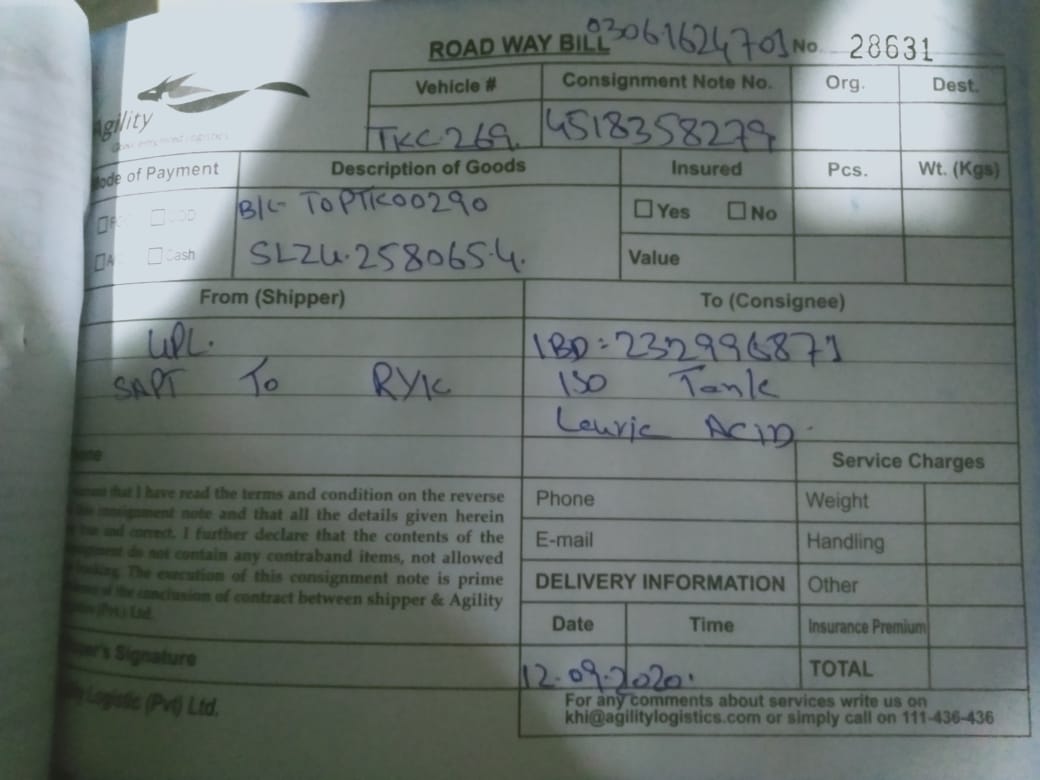 ROAD WAY BILL 03061624701 No. 28631
Agility
Vehicle # Consignment Note No. Org. Dest.
TKC269. 4518358279
Mode of Payment Description of Goods Insured Pcs. Wt. (Kgs)
B/L- TOPTK00290 Yes No
Cash SLZU.258065.4. Value
From (Shipper) To (Consignee)
UPL. IBD=232996871
SAPT To RYK ISO Tank
Lauric ACID.
Service Charges
that I have read the terms and condition on the reverse
consignment note and that all the details given herein
true and correct. I further declare that the contents of the
do not contain any contraband items, not allowed
The execution of this consignment note is prime
of the conclusion of contract between shipper & Agility
(Pvt.) Ltd.
Phone Weight
E-mail Handling
DELIVERY INFORMATION Other
Date Time Insurance Premium
Signature 12.09.2020. TOTAL
Logistic (Pvt) Ltd.
For any comments about services write us on
khi@agilitylogistics.com or simply call on 111-436-436